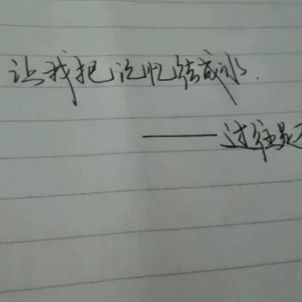 让我把记忆结成冰.
——过往是